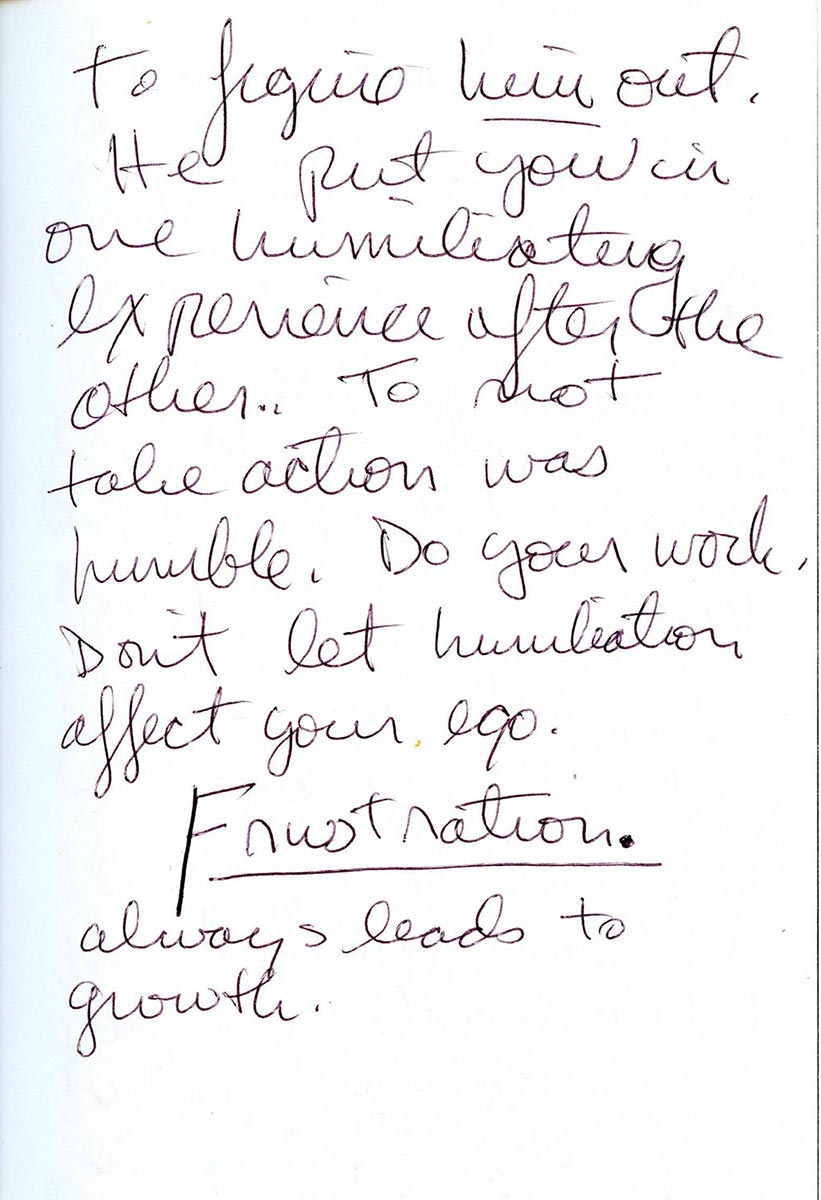 to figure him out.
He put you in
one humiliating
experience after the
other.. To not
take action was
humble. Do your work.
Don't let humiliation
affect your ego.
Frustration.
always leads to
growth.